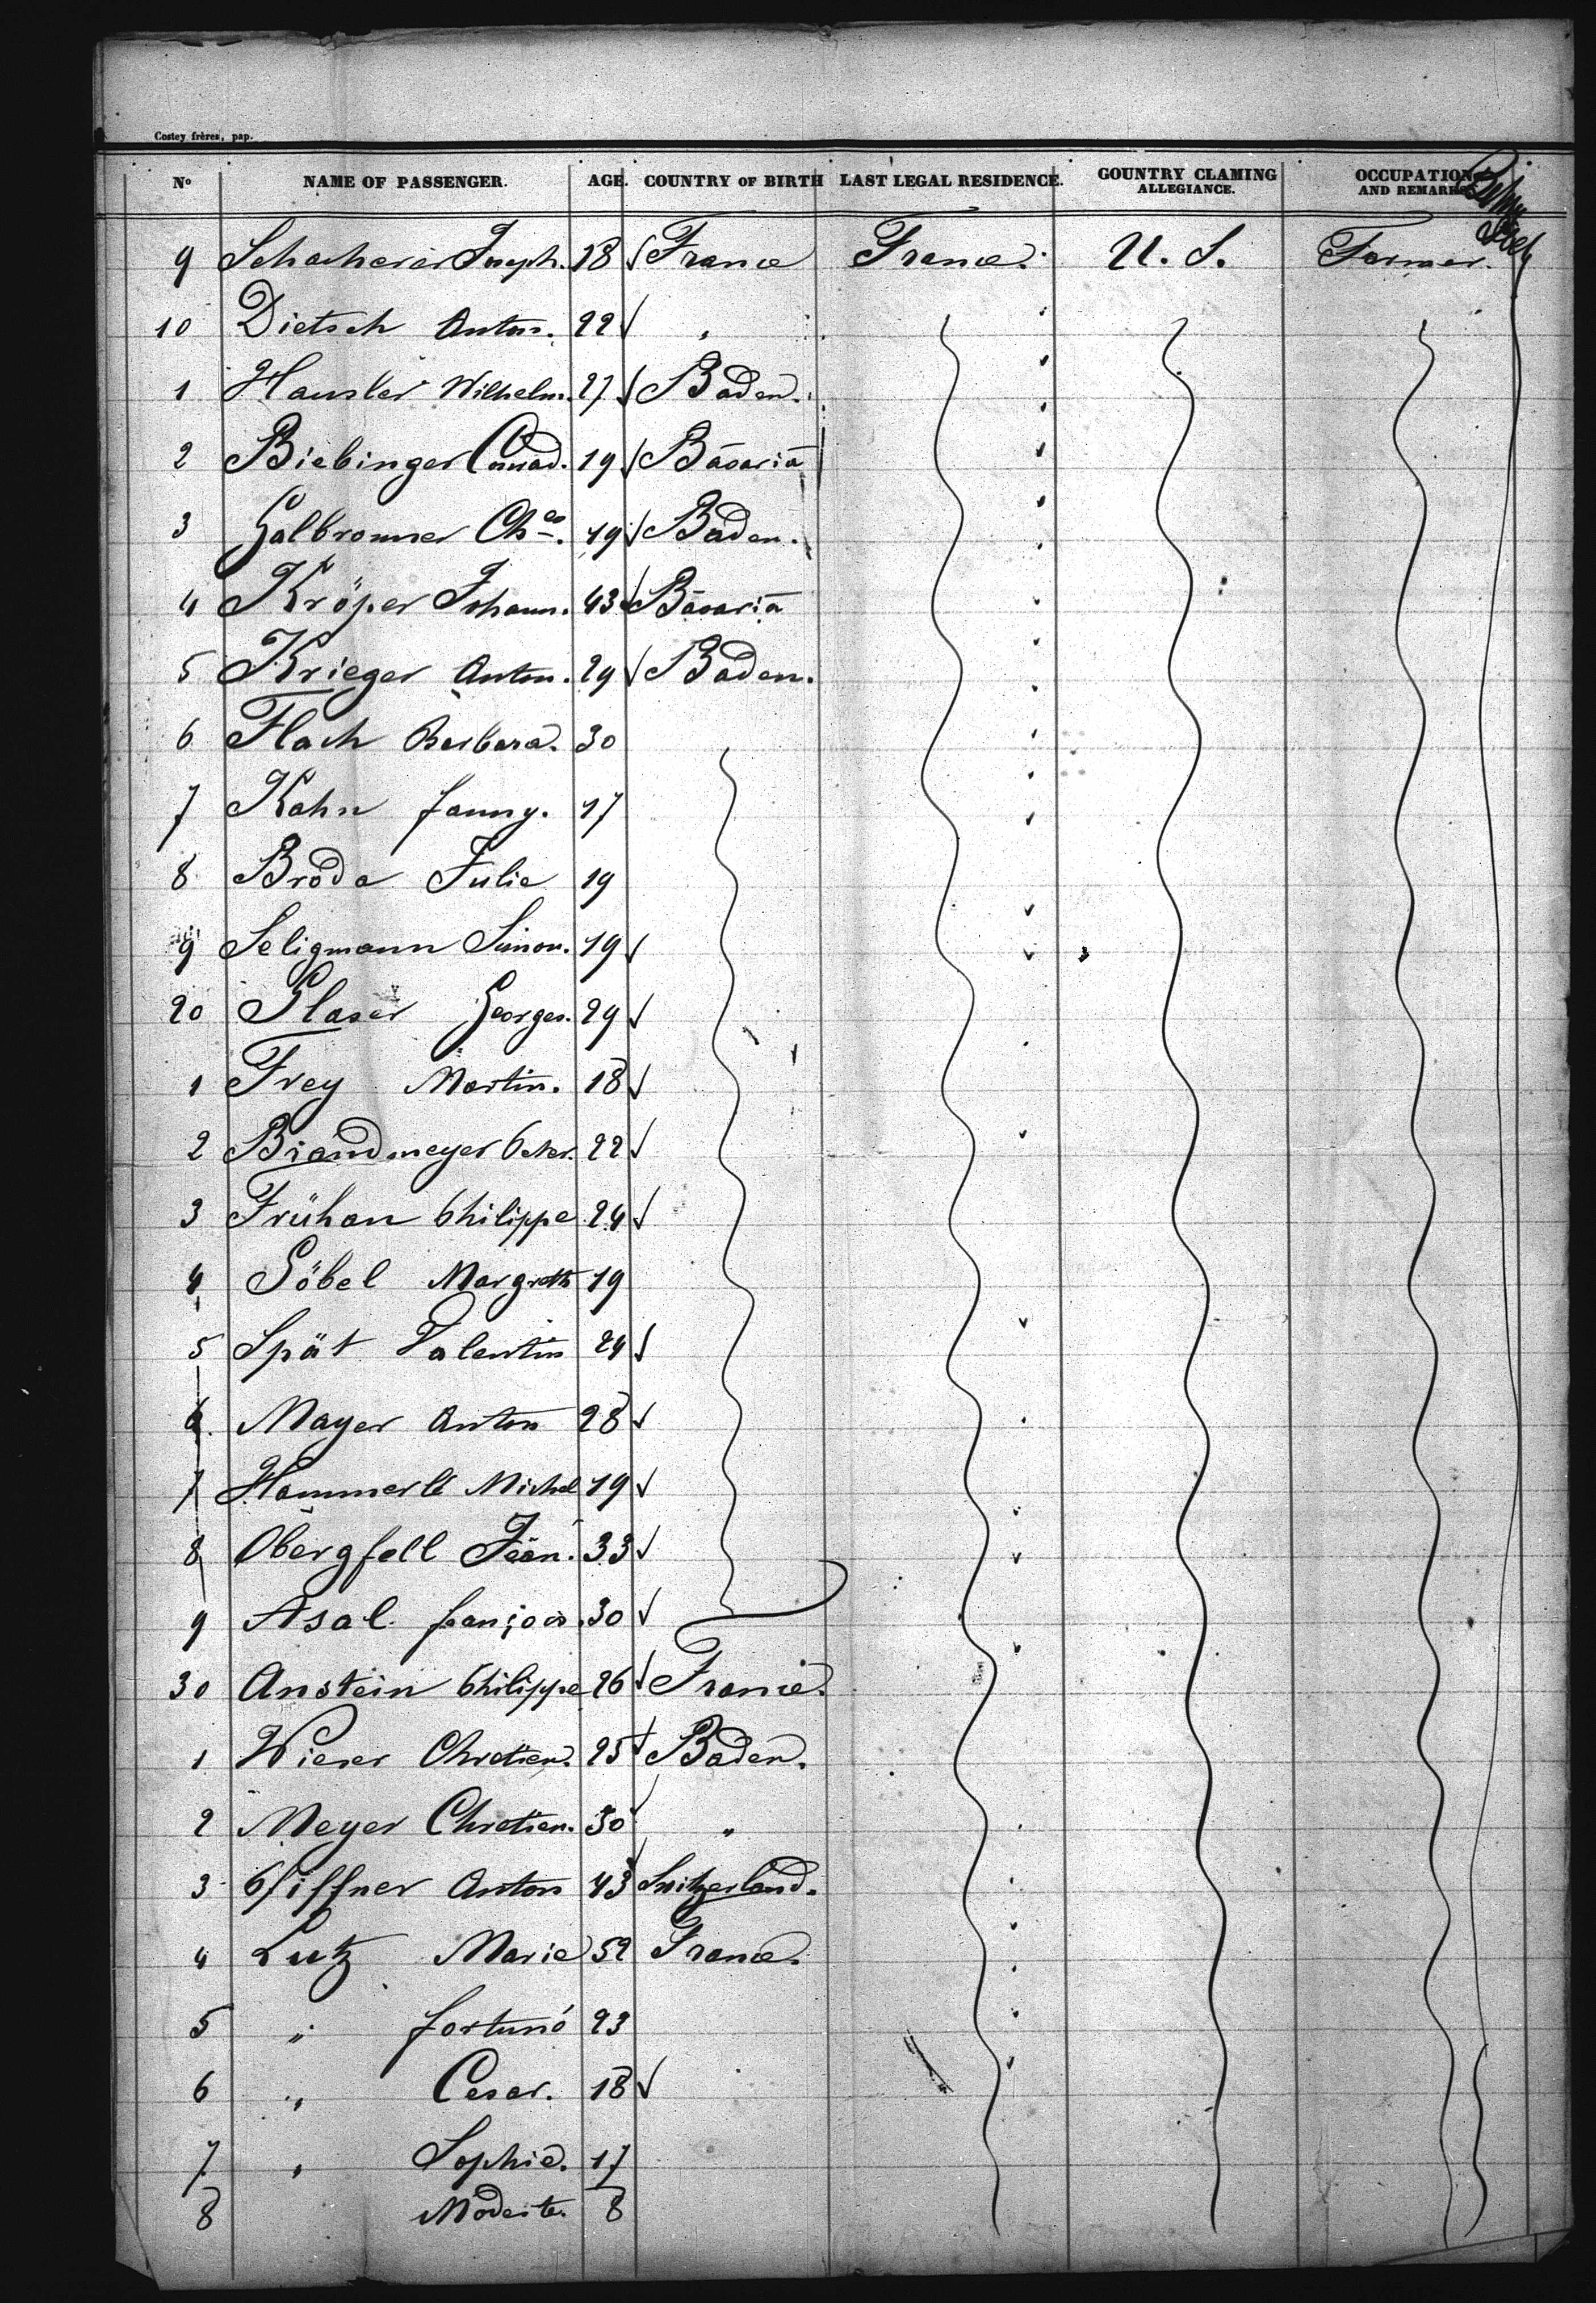 Costey frères, pap.
No NAME OF PASSENGER. AGE. COUNTRY OF BIRTH LAST LEGAL RESIDENCE. COUNTRY CLAMING ALLEGIANCE. OCCUPATION AND REMARKS.
9 Schacherer Joseph. 18 France France. U. S. Farmer.
10 Dietsch Anton. 22 "
1 Hausler Wilhelm. 27 Baden.
2 Biebinger Conrad. 19 Bavaria
3 Galbronner Ches. 19 Baden.
4 Kröper Johann. 43 Bavaria
5 Krieger Anton. 29 Baden.
6 Flach Barbara. 30
7 Kahn fanny. 17
8 Broda Julie 19
9 Seligmann Simon. 19
20 Glaser Georges. 29
1 Frey Martin. 18
2 Brandmeyer Peter. 22
3 Frühan Philippe 24
4 Göbel Margreth 19
5 Spät Valentin 24
6 Mayer Anton 28
7 Hammerle Michel 19
8 Obergfell Jean. 33
9 Asal françois. 30
30 Anstein Philippe 26 France.
1 Wieser Chretien. 25 Baden.
2 Meyer Chretien. 30 "
3 Pfiffner Anton 43 Switzerland.
4 Lutz Marie 52 France.
5 " fortuné 23
6 " Cesar. 18
7 " Sophie. 17
8 Modeste. 8